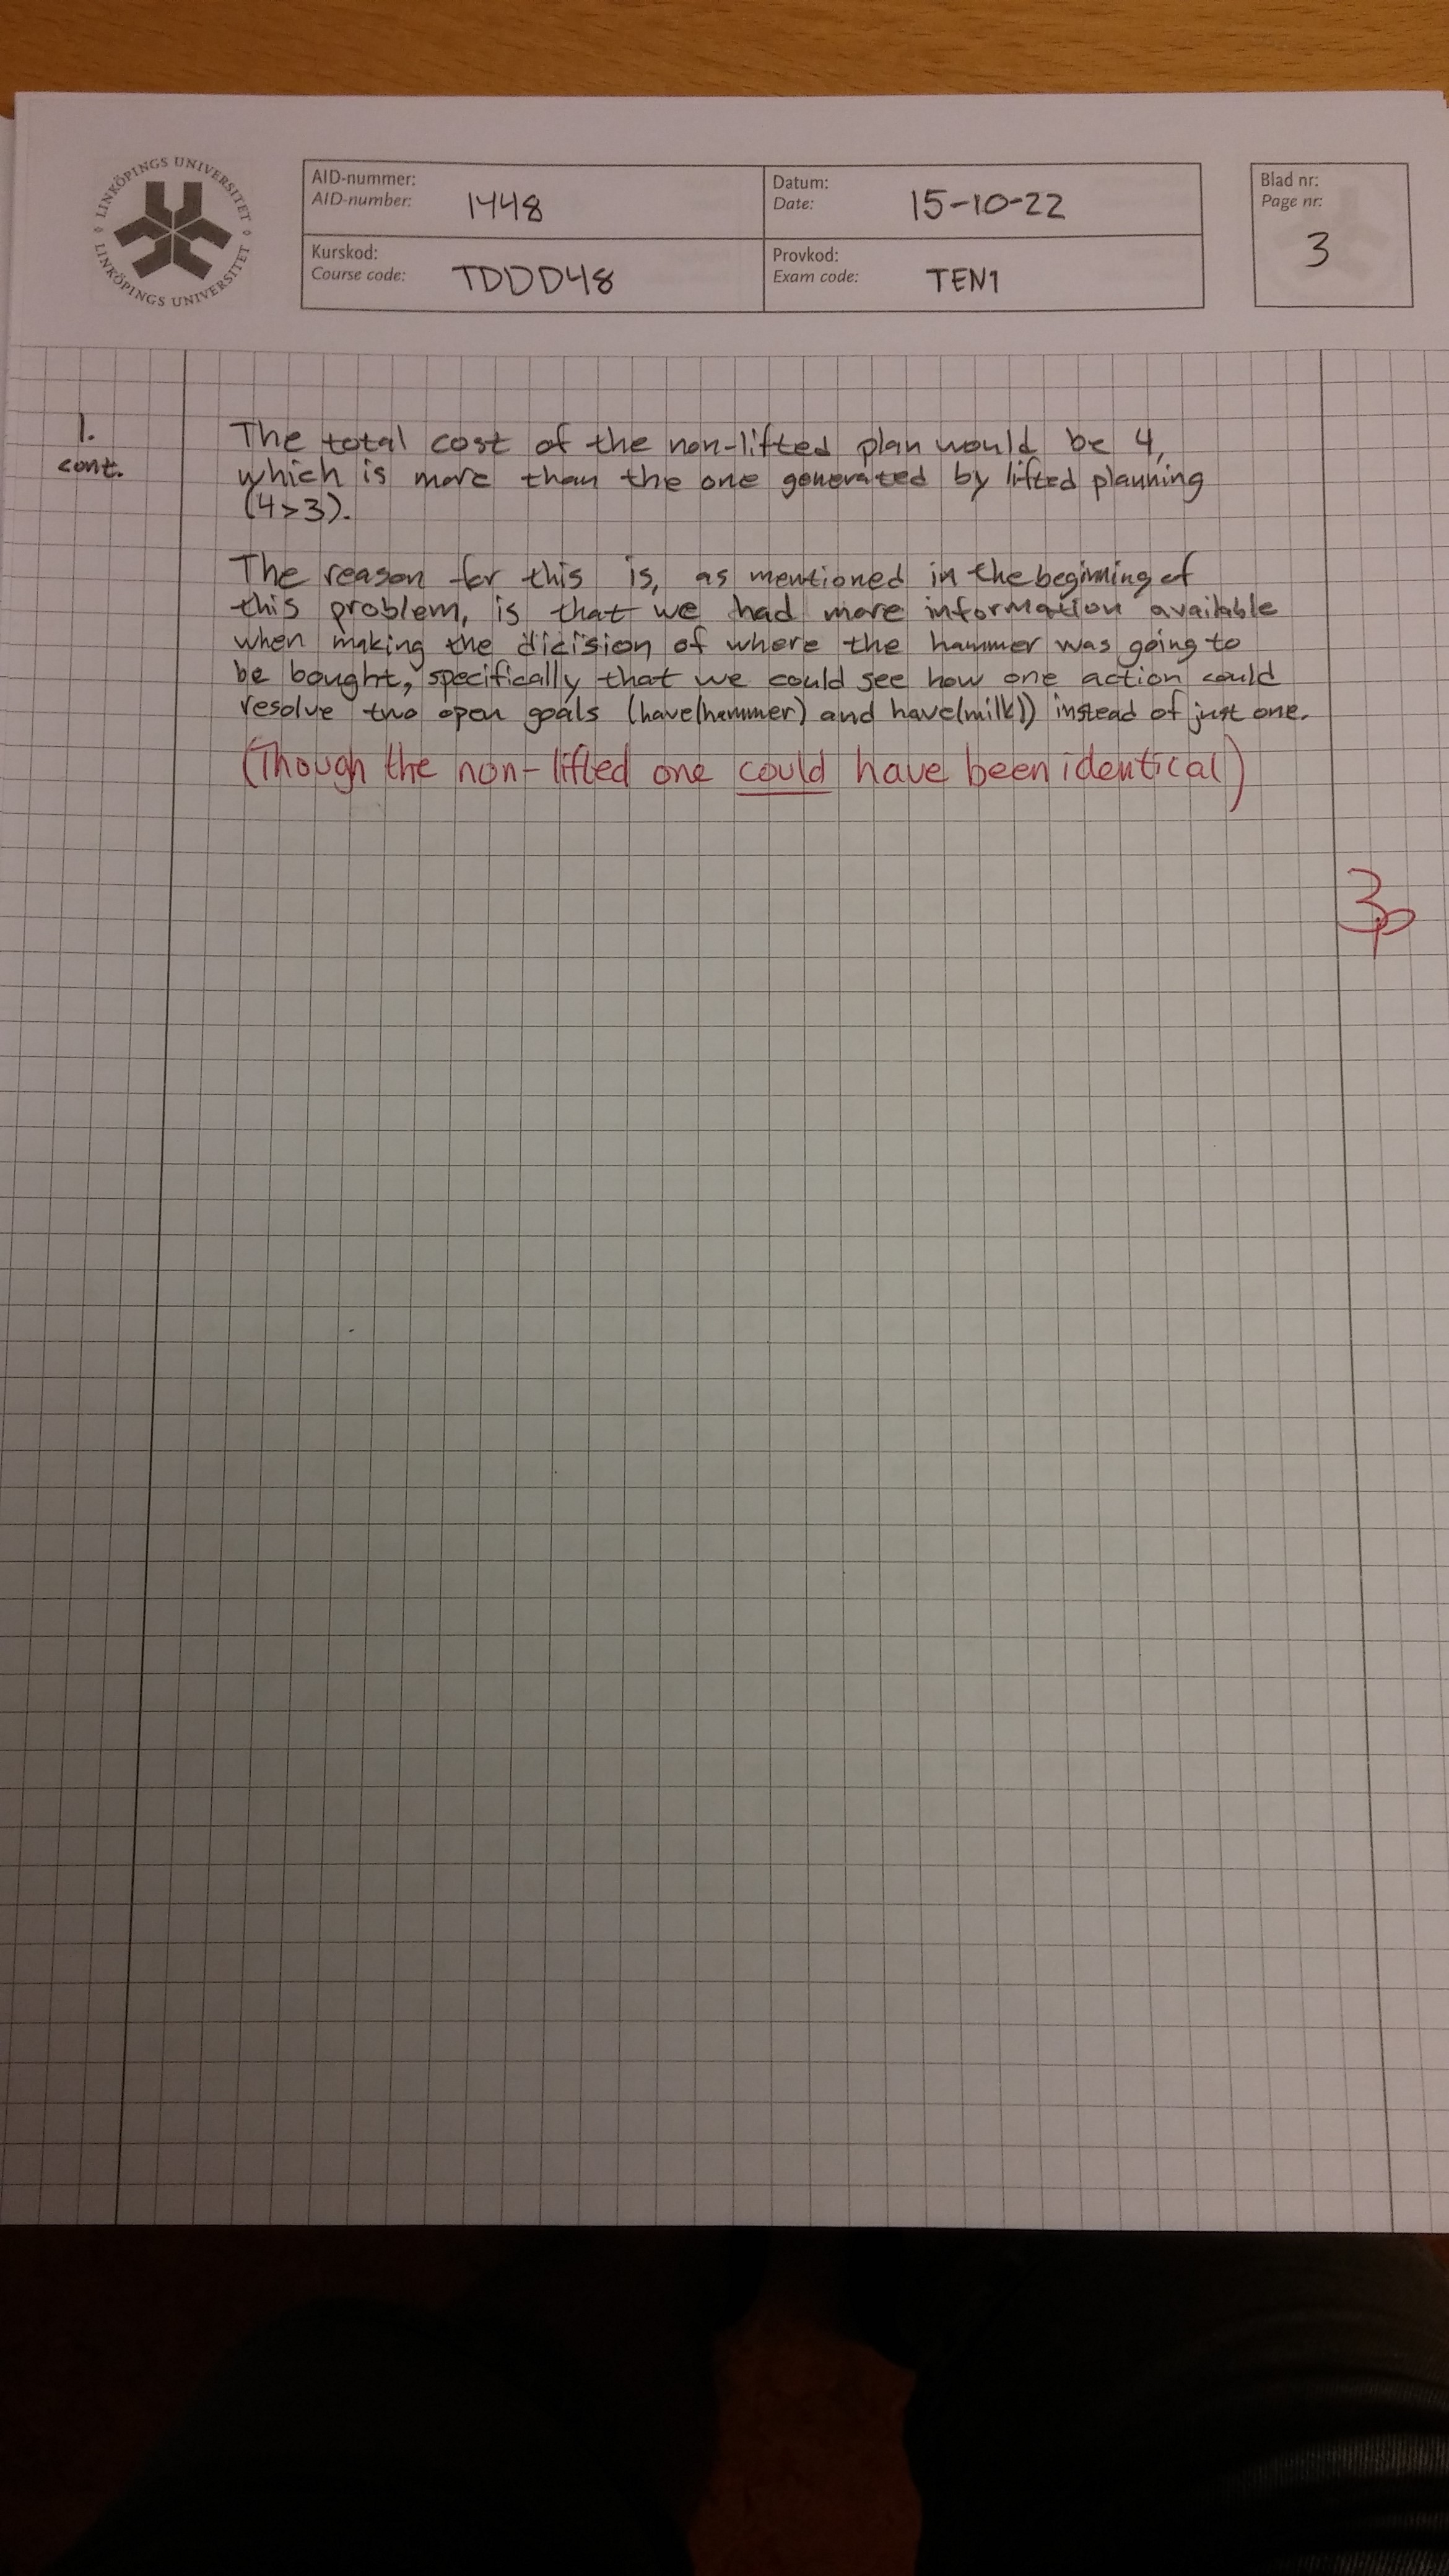 LINKÖPINGS UNIVERSITET
LINKÖPINGS UNIVERSITET
AID-nummer:
AID-number: 1448
Datum:
Date: 15-10-22
Blad nr:
Page nr:
3
Kurskod:
Course code: TDDD48
Provkod:
Exam code: TEN1
1.
cont.
The total cost of the non-lifted plan would be 4,
which is more than the one generated by lifted planning
(4>3).
The reason for this is, as mentioned in the beginning of
this problem, is that we had more information available
when making the dicision of where the hammer was going to
be bought, specifically that we could see how one action could
resolve two open goals (have(hammer) and have(milk)) instead of just one.
(Though the non-lifted one could have been identical)
3p